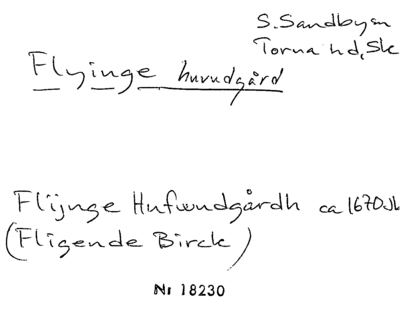 S. Sandbyen
Torna hd, Sk
Flyinge huvudgård
Flijnge Hufwudgårdh ca 1670 Jb
(Fligende Birck)
Nr 18230